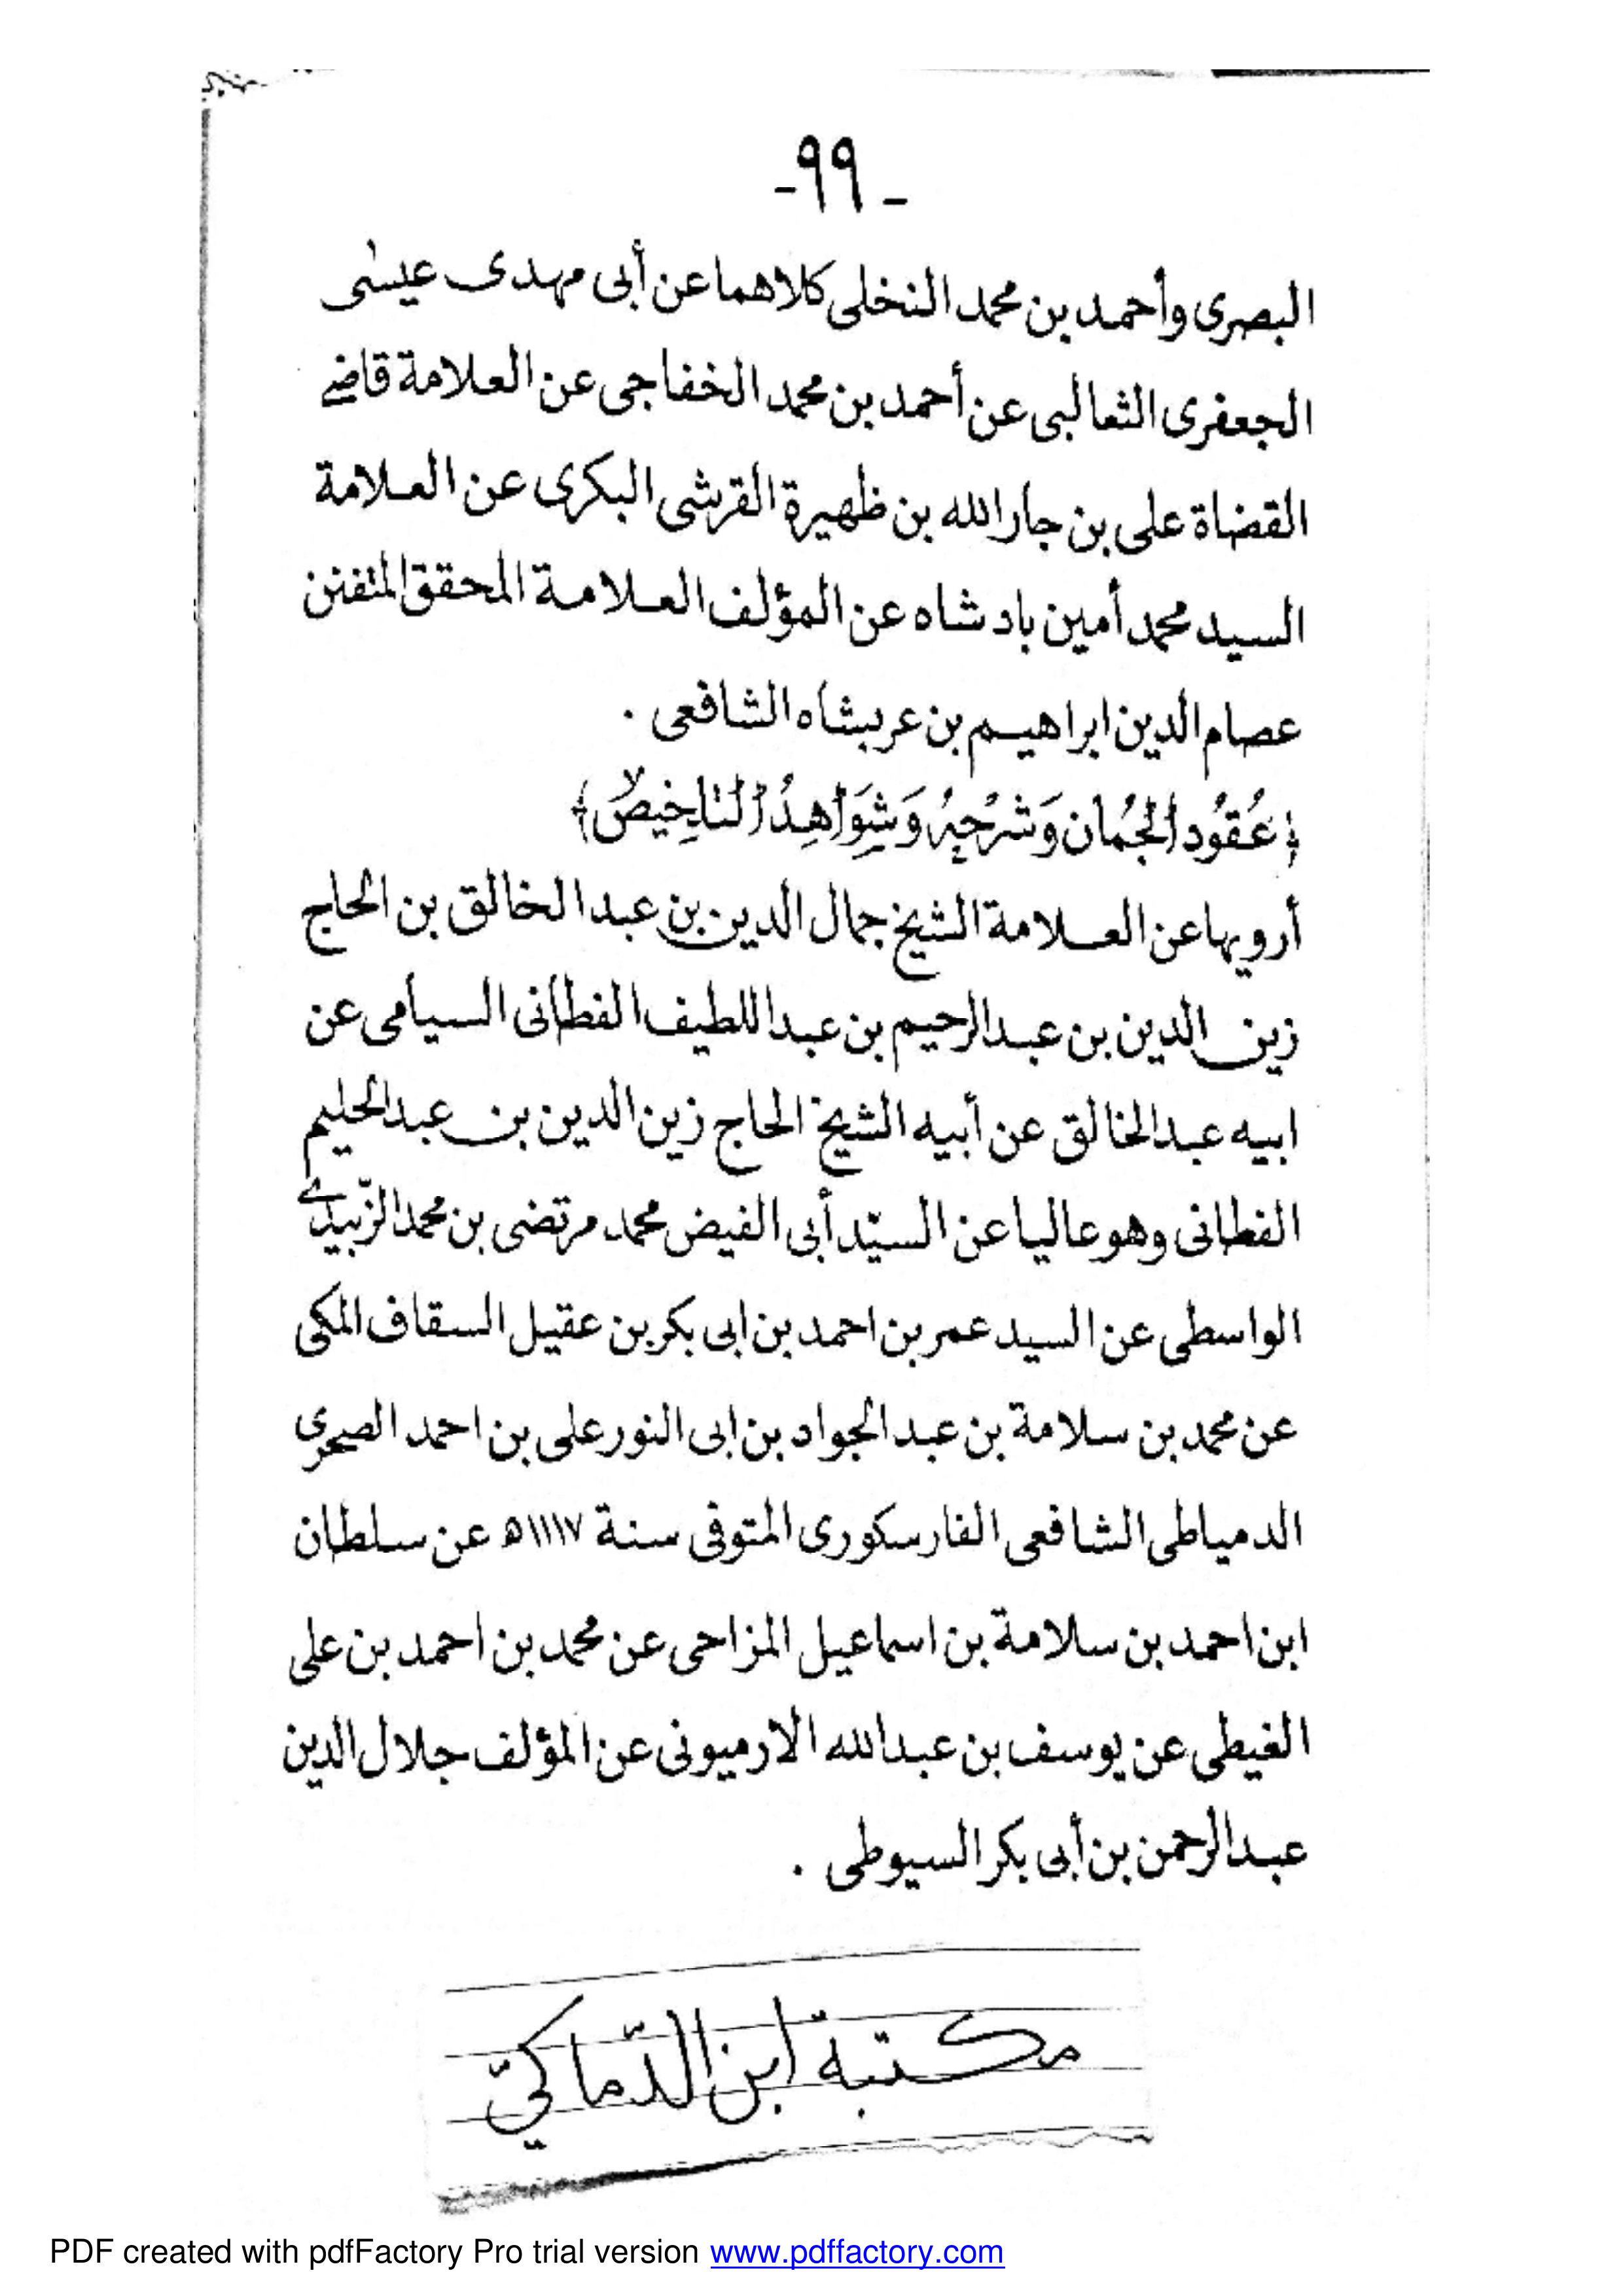 -٩٩-
البصرى وأحمد بن محمد النخلى كلاهما عن أبى مهدى عيسى
الجعفرى الثعالبى عن أحمد بن محمد الخفاجى عن العلامة قاضى
القضاة على بن جار الله بن ظهيرة القرشى البكرى عن العلامة
السيد محمد أمين بادشاه عن المؤلف العلامة المحقق المتفنن
عصام الدين ابراهيم بن عربشاه الشافعى .
﴿عُقُود الجُمان وَشَرْحِهِ وَشَوَاهِدُ التلخِيصْ﴾
أرويها عن العلامة الشيخ جمال الدين بن عبد الخالق بن الحاج
زين الدين بن عبد الرحيم بن عبد اللطيف الفطانى السيامى عن
ابيه عبد الخالق عن أبيه الشيخ الحاج زين الدين بن عبد الحليم
الفطانى وهو عاليا عن السيّد أبى الفيض محمد مرتضى بن محمد الزّبيدى
الواسطى عن السيد عمر بن احمد بن ابى بكر بن عقيل السقاف المكى
عن محمد بن سلامة بن عبد الجواد بن ابى النور على بن احمد الصحرى
الدمياطى الشافعى الفارسكورى المتوفى سنة ١١١٧ه عن سلطان
ابن احمد بن سلامة بن اسماعيل المزاحى عن محمد بن احمد بن على
الغيطى عن يوسف بن عبد الله الارميونى عن المؤلف جلال الدين
عبد الرحمن بن أبى بكر السيوطى .
مكتبة ابن الدّماكيّ
PDF created with pdfFactory Pro trial version www.pdffactory.com